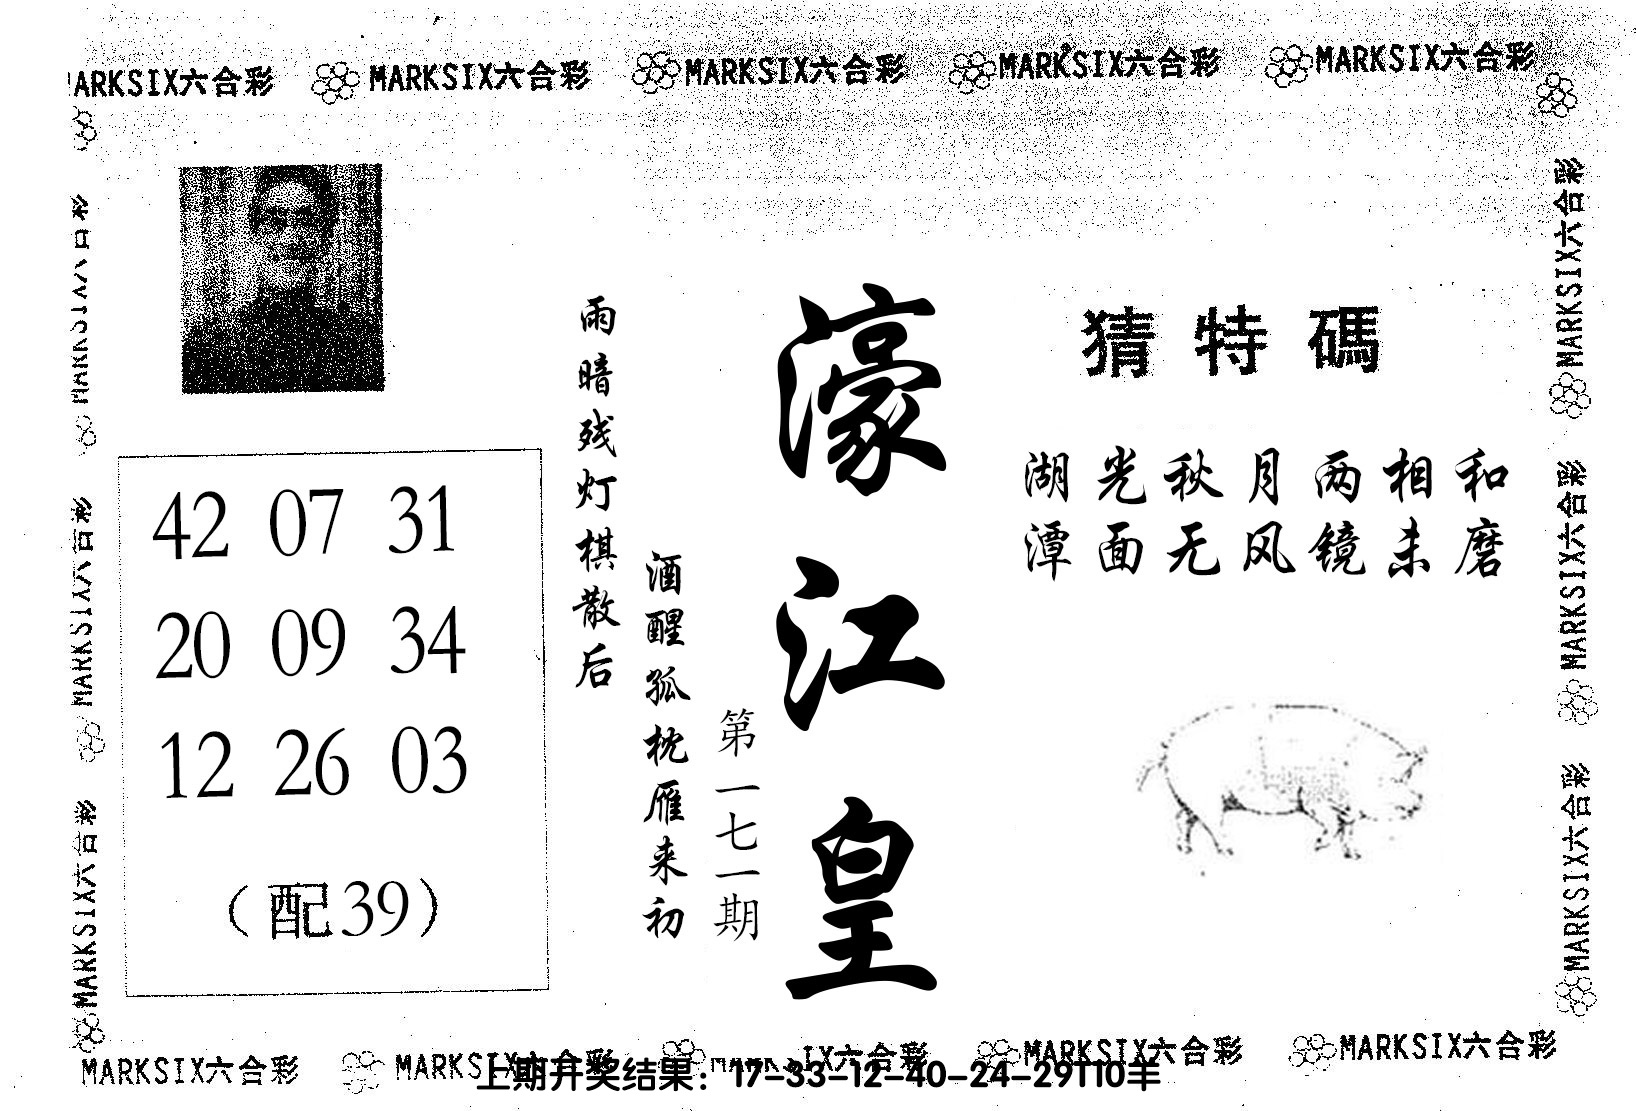 MARKSIX六合彩 MARKSIX六合彩 MARKSIX六合彩 MARKSIX六合彩
MARKSIX六合彩
猜特碼
湖光秋月两相和
潭面无风镜未磨
濠江皇
第一七一期
雨暗残灯棋散后
酒醒孤枕雁来初
42 07 31
20 09 34
12 26 03
（配39）
MARKSIX六合彩
MARKSIX六合彩
MARKSIX六合彩
MARKSIX六合彩
MARKSIX六合彩
MARKSIX六合彩 MARKSIX六合彩 MARKSIX六合彩 MARKSIX六合彩
上期开奖结果：17-33-12-40-24-29T10羊